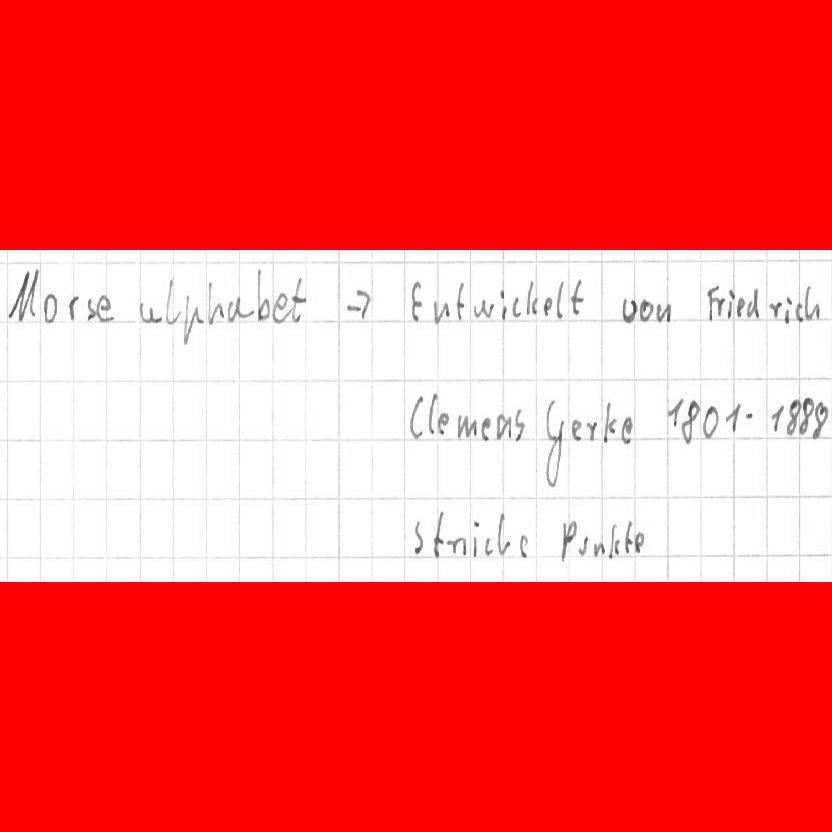 Morse alphabet → Entwickelt von Friedrich
Clemens Gerke 1801-1888
Striche Punkte